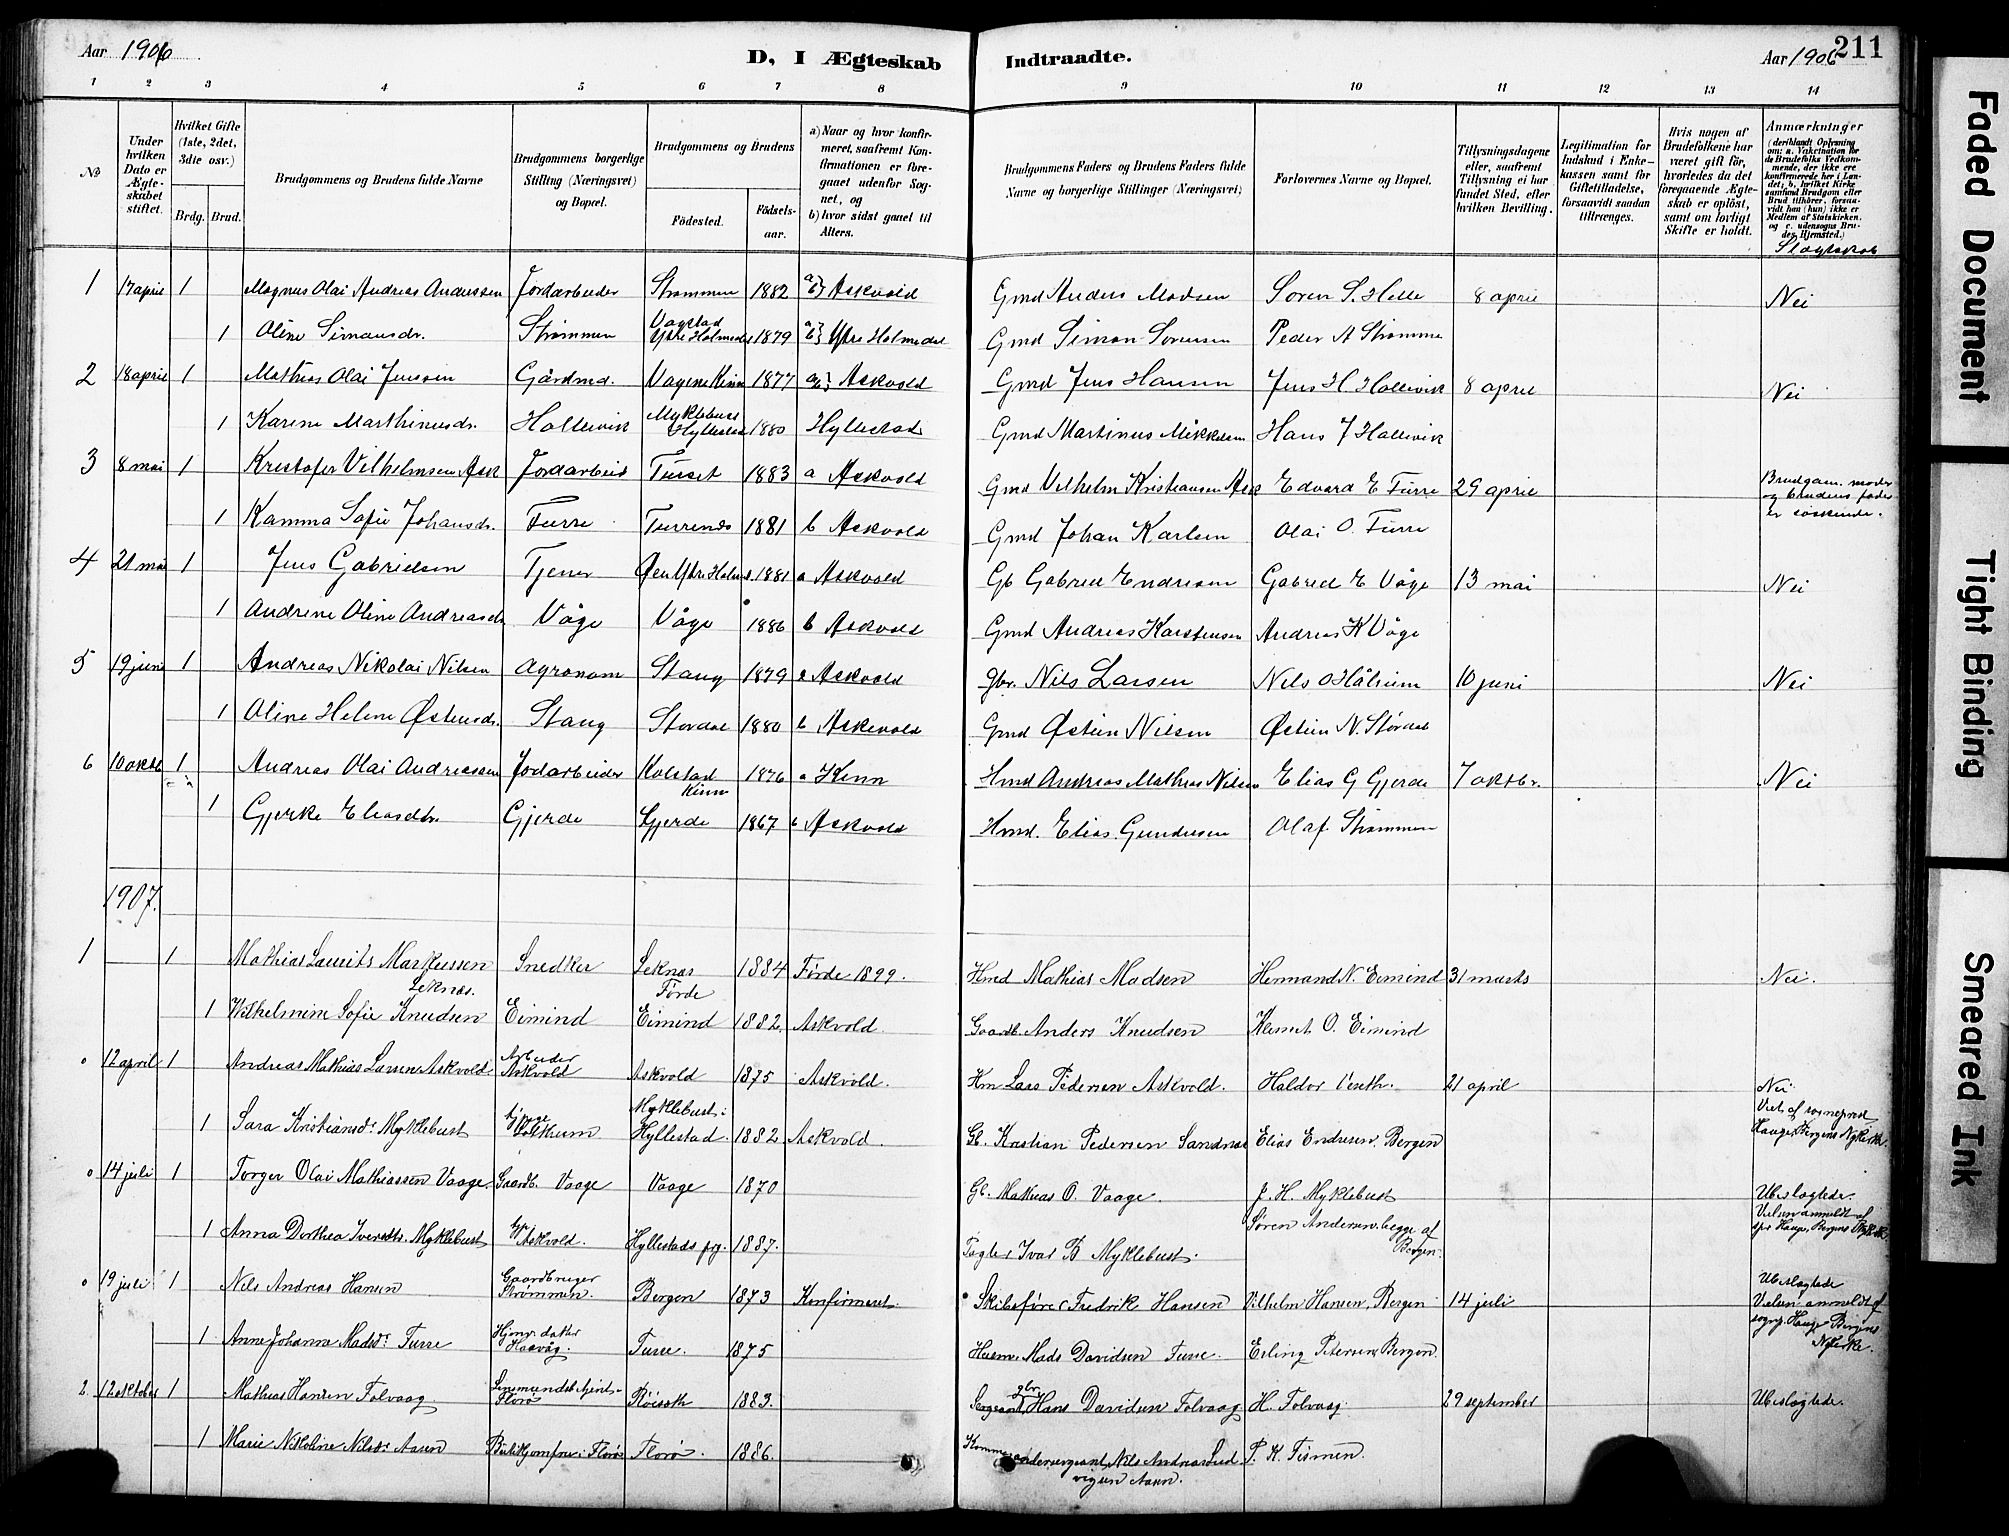 Aar 1906
D, I Ægteskab Indtraadte.
Aar 1906
211
1 2 3 4 5 6 7 8 9 10 11 12 13 14
No
Under hvilken Dato er Ægteskabet stiftet.
Hvilket Gifte (1ste, 2det, 3die osv.)
Brdg. Brud.
Brudgommens og Brudens fulde Navne
Brudgommens borgerlige Stilling (Næringsvei) og Bopæl.
Brudgommens og Brudens
Fødested.
Fødselsaar.
a) Naar og hvor konfirmeret, saafremt Konfirmationen er foregaaet udenfor Sognet, og
b) hvor sidst gaaet til Alters.
Brudgommens Faders og Brudens Faders fulde Navne og borgerlige Stillinger (Næringsvei)
Forlovernes Navne og Bopæl.
Tillysningsdagene eller, saafremt Tillysning ei har fundet Sted, efter hvilken Bevilling.
Legitimation for Indskud i Enkekassen samt for Giftetilladelse, forsaavidt saadan tiltrænges.
Hvis nogen af Brudefolkene har været gift før, hvorledes da det foregaaende Ægteskab er opløst, samt om lovligt Skifte er holdt.
Anmærkninger (deriblandt Oplysning om: a. Vakcination for de Brudefolks Vedkommende, der ikke ere konfirmerede her i Landet; b. hvilket Kirkesamfund Brudgom eller Brud tilhører, forsaavidt han (hun) ikke er Medlem af Statskirken, og c. udensogns Brudes Hjemsted.)
Slægtskab
1 17 april 1 Magnus Olai Andreas Anderssen Jordarbeider Strømmen 1882 a b} Askvold Gmd Anders Madsen Søren S. Helle 8 april Nei
1 Oline Simonsdr. Strømmen Vagstad Ytre Holmedal 1879 a b} Ytre Holmedal Gmd Simon Sørensen Peder A Strømme
2 18 april 1 Mathias Olai Jensen Gårdmd. Vagene Kinn 1877 a b} Askvold Gmd Jens Hansen Jens H. Hollevik 8 april Nei
1 Karene Marthinusdr. Hollevik Myklebust Hyllestad 1880 Hyllestad Gmd Martinus Mikkelsen Hans J Hollevik
3 8 mai 1 Kristofer Vilhelmsen Ask Jordarbeid 1883 a Askvold Gmd Vilhelm Kristiansen Ask Edvard E Furre 29 april Brudgom. moder og brudens fader er søskende.
1 Kamma Sofie Johansdr. Furre Furrenes 1881 b Askvold Gmd Johan Karlsen Olai O. Furre
4 21 mai 1 Jens Gabrielsen Tjener Øen Ytre Holmed. 1881 a Askvold Gb Gabriel Endresen Gabriel E Våge 13 mai Nei
1 Andrine Oline Andreasdr Våge Våge 1886 b Askvold Gmd Andreas Karstensen Andreas K Våge
5 19 juni 1 Andreas Nikolai Nilsen Agronom Stang 1879 a Askvold Gbr. Nils Larsen Nils O 10 juni Nei
1 Oline Helene Østensdr. Stang Stordal 1880 b Askevold Gmd Østein Nilsen Østein N. Størdal
6 10 oktb 1 Andreas Olai Andreassen Jodarbeider Kolstad Kinn 1876 a Kinn Hmd Andreas Mathias Nilsen Elias G Gjerde 7 oktbr. Nei
1 Gjerke Eliasdtr. Gjerde Gjerde 1867 b Askvold Hmd. Elias Gundersen Olaf Strømmen
1907.
1 1 Mathias Laurits Markussen Leknæs. Snedker Leknæs Førde 1884 Førde 1899. Hmd Mathias Madsen Hermand N. Eimind 31 marts Nei.
1 Wilhelmine Sofie Knudsen Eimind Eimind 1882. Askvold. Gaardb. Anders Knudsen O. Eimind
0 12 april 1 Andreas Mathias Larsen Askvold Arbeider Askvold Askvold 1875 Askvold. Km Lars Pedersen Askvold. Haldor 21 april Nei.
1 Sara Kristiansdr. Myklebust Myklebust i Hyllestad. 1882 Askvold. Gb. Kristian Pedersen Sandnæs Elias Endresen, Bergen Viet af sogneprest Hauge, Bergens Nykirke.
0 14 juli 1 Torger Olai Mathiassen Vaage. Gaardb. Vaage Vaage 1870 Gb. Mathias O. Vaage. J. H. Myklebust Ubeslægtede.
1 Anna Dorthea Iversdtr. Myklebust Askvold. Hyllestads prg. 1887. Ivar B Myklebust. Søren Andersen, begge af Bergen. Vielsen anmeldt af spr Hauge, Bergens Nykirke
0 19 juli 1 Nils Andreas Hansen Gaardbruger Strømmen. Bergen 1873 Konfirmeret. Skibsfører Fredrik Hansen Vilhelm Hansen, Bergen 14 juli Ubeslægtede Vielsen anmeldt af sogpr. Hauge Bergens Nykirke.
1 Anne Johanne Madsdr. Furre Furre. 1875 Husm. Mads Davidsen Furre. Erling Petersen, Bergen.
2. 12 oktober 1 Mathias Hansen Folvaag Florø 1883. gbr Sergeant Hans Davidsen Folvaag H. Folvaag. 29 september Ubeslægtede.
1 Marie Nikoline Nilsdr. Aasen Butikjomfru i Florø Florø. 1886. Kommandersergeant Nils Andreas Ludvigsen Aasen. P. K.
Faded Document
Tight Binding
Smeared Ink